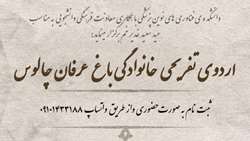 دانشکده ی فناوری های نوین پزشکی با همکاری معاونت فرهنگی دانشجویی به مناسبت
عید سعید غدیر خم برگزار می‌نماید:
اردوی تفریحی خانوادگی باغ عرفان چالوس
ثبت نام به صورت حضوری و از طریق واتساپ ۰۹۱۰۱۴۳۳۱۸۸